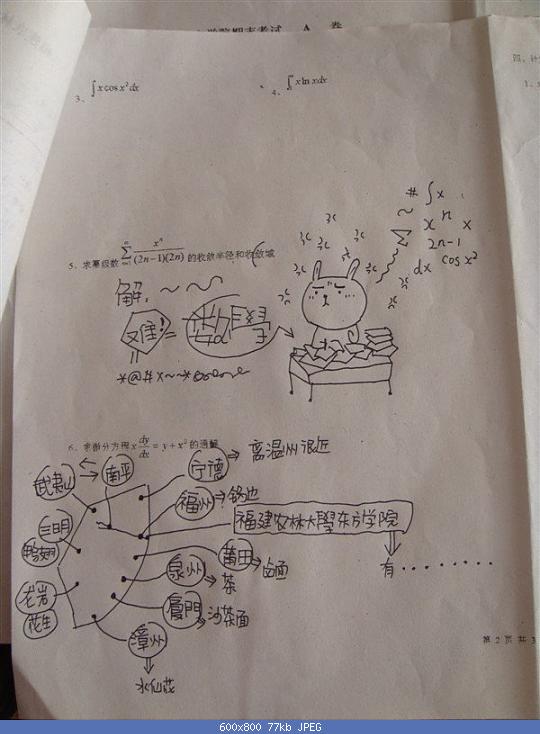 学院期末考试 A 卷
四、计
1、
3、∫x cos x² dx
4、∫x ln x dx
5、求幂级数 ∑ xⁿ/((2n−1)(2n)) 的收敛半径和收敛域
# ∫ x
~ ∑ x n x
2n-1
dx cos x²
解:~~~
又难! =
6、求微分方程 x dy/dx = y + x² 的通解
武夷山
南平
宁德 → 离温州很近
福州 → 锅边
福建农林大學东方学院
有········
三明
鸭翅
莆田 → 卤面
泉州 → 茶
龙岩
花生
厦門 → 沙茶面
漳州
水仙花
第 2 页 共 3
600x800 77kb JPEG